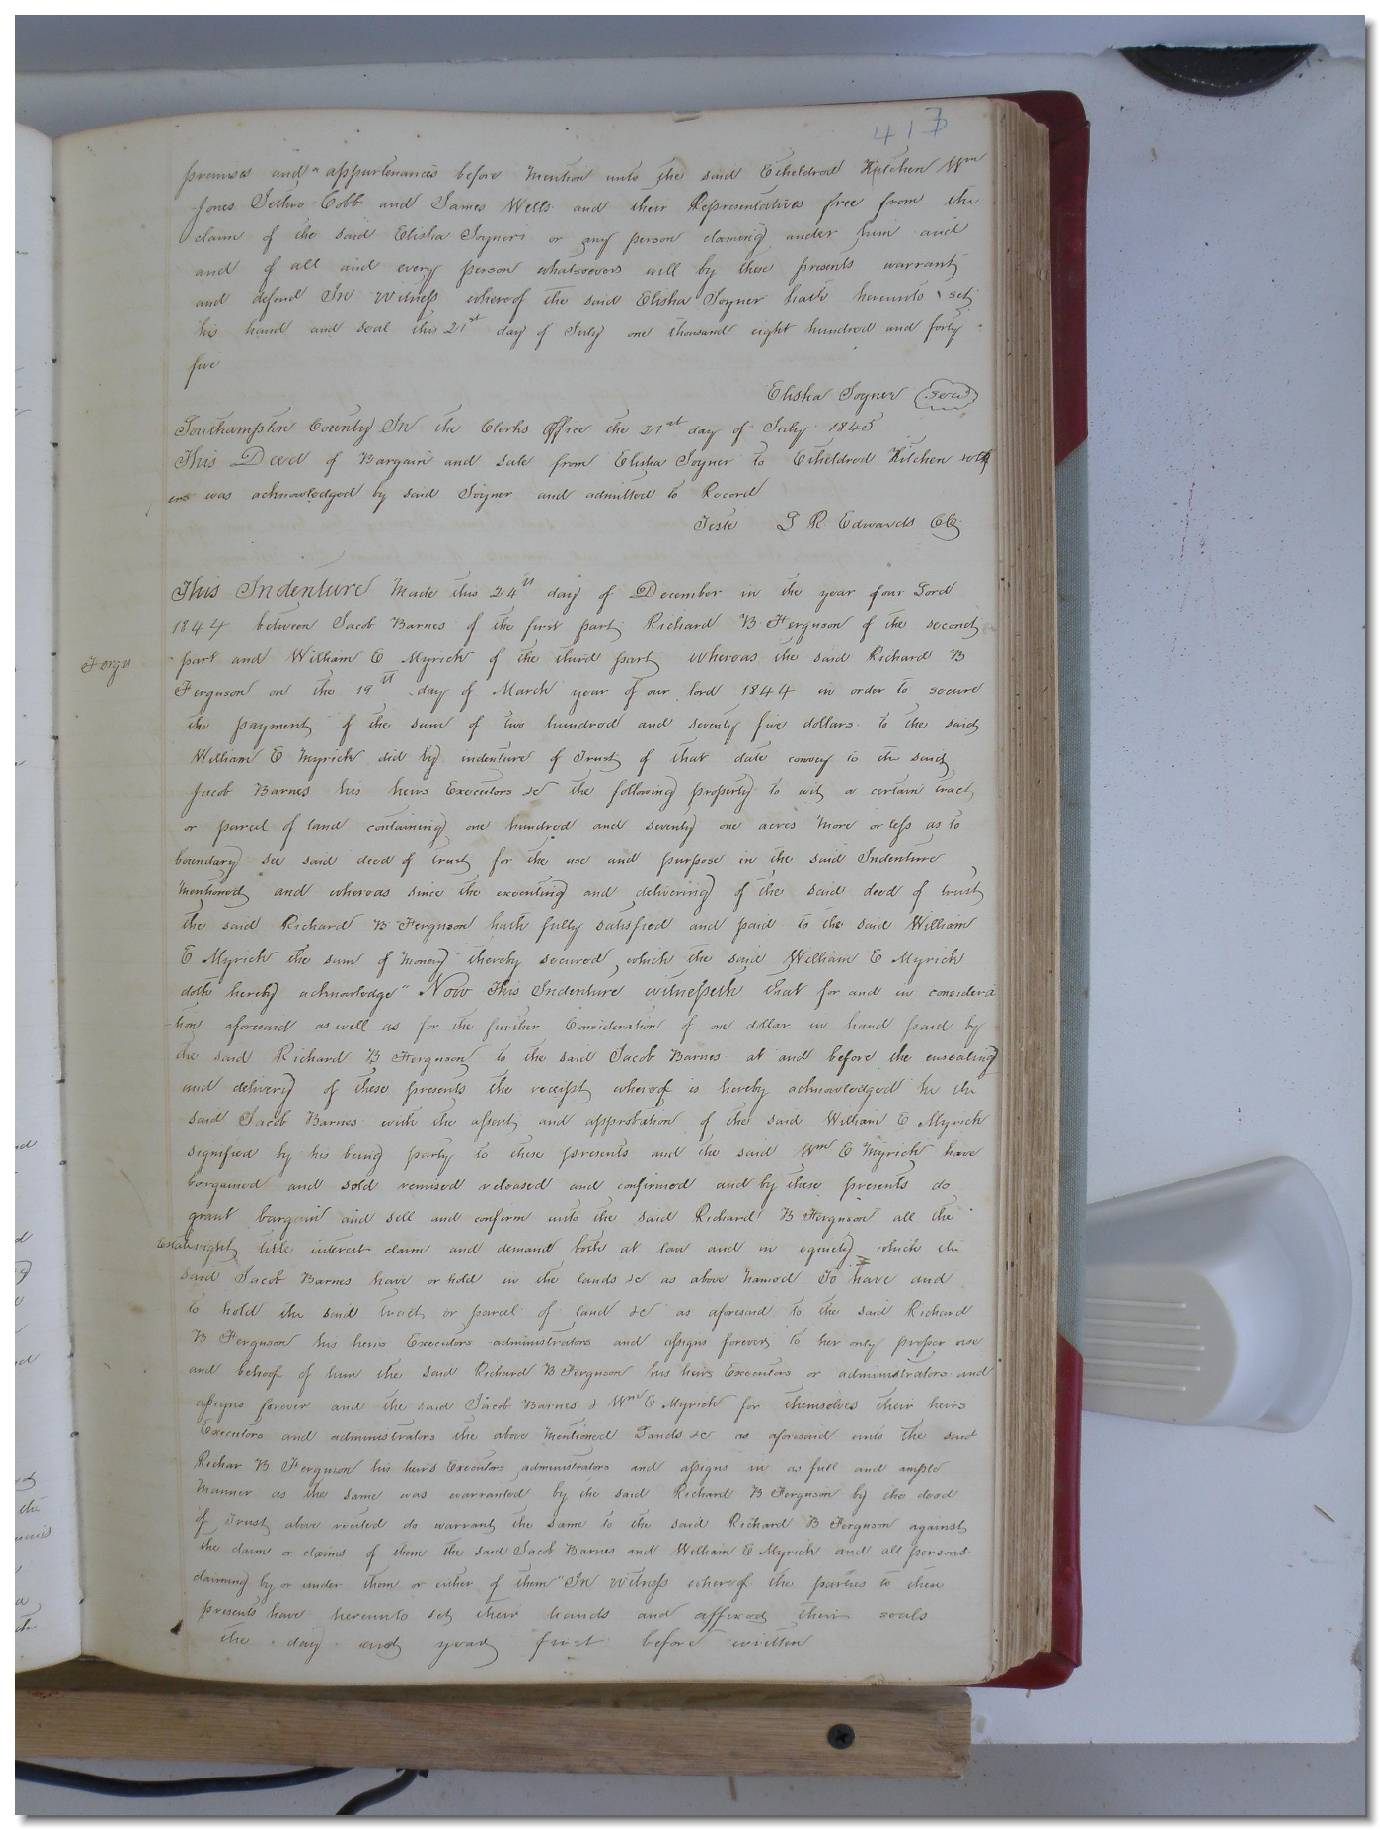 417
premises and appurtenances before mention unto the said Etheldred Kitchen Wm
Jones Jethro Cobb and James Wells and their Representatives free from the
claim of the said Elisha Joyner or any person claiming under him and
and of all and every person whatsoevers will by these presents warrant
and defend In Witness whereof the said Elisha Joyner hath hereunto set
his hand and seal this 21st day of July one thousand eight hundred and forty
five
Elisha Joyner (Seal)
Southampton County In the Clerks Office the 21st day of July 1845
This Deed of Bargain and sale from Elisha Joyner to Etheldred Kitchen & oth
ers was acknowledged by said Joyner and admitted to Record
Teste L R Edwards CC
This Indenture Made this 24th day of December in the year of our Lord
1844 between Jacob Barnes of the first part Richard B Ferguson of the second
Fergu
part and William E Myrick of the third part whereas the said Richard B
Ferguson on the 19th day of March year of our lord 1844 in order to secure
the payment of the sum of two hundred and seventy five dollars to the said
William E Myrick did by indenture of Trust of that date convey to the said
Jacob Barnes his heirs Executors &c the following property to wit a certain tract
or parcel of land containing one hundred and seventy one acres more or less as to
boundary see said deed of trust for the use and purpose in the said Indenture
mentioned and whereas since the executing and delivering of the said deed of trust
the said Richard B Ferguson hath fully satisfied and paid to the said William
E Myrick the sum of money thereby secured, which the said William E Myrick
doth hereby acknowledge" Now This Indenture witnesseth that for and in considera
tion aforesaid as well as for the further Consideration of one dollar in hand paid by
the said Richard B Ferguson to the said Jacob Barnes at and before the ensealing
and delivery of these presents the receipt whereof is hereby acknowledged he the
said Jacob Barnes with the assent and approbation of the said William E Myrick
signified by his being party to these presents and the said Wm E Myrick have
bargained and sold remised released and confirmed and by these presents do
grant bargain and sell and confirm unto the said Richard B Ferguson all the
Estate right title interest claim and demand both at law and in equity which the
said Jacob Barnes have or hold in the lands &c as above named To have and
to hold the said tract or parcel of land &c as aforesaid to the said Richard
B Ferguson his heirs Executors administrators and assigns forever to her only proper use
and behoof of him the said Richard B Ferguson his heirs Executors or administrators and
assigns forever and the said Jacob Barnes & Wm E Myrick for themselves their heirs
Executors and administrators the above mentioned Lands &c as aforesaid unto the said
Richar B Ferguson his heirs Executors administrators and assigns in as full and ample
Manner as the same was warranted by the said Richard B Ferguson by the deed
of Trust above recited do warrant the same to the said Richard B Ferguson against
the claim or claims of them the said Jacob Barnes and William E Myrick and all persons
claiming by or under them or either of them" In witness whereof the parties to these
presents have hereunto set their hands and affixed their seals
the day and year first before written